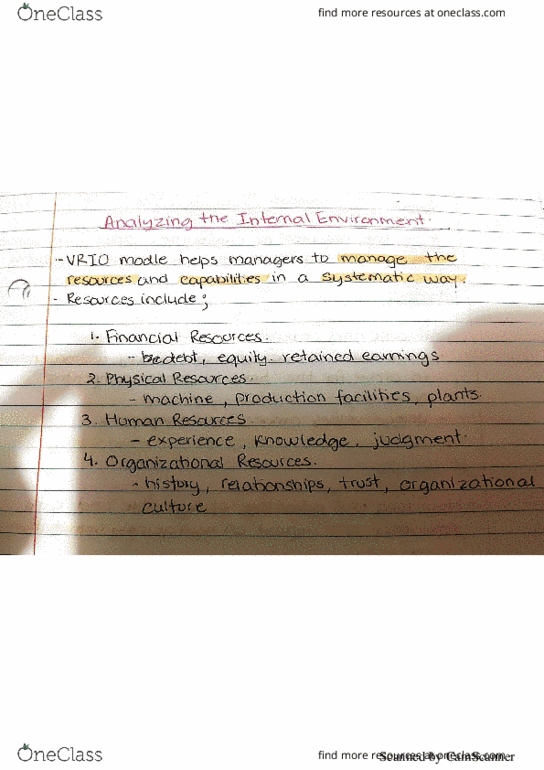 OneClass
find more resources at oneclass.com
Analyzing the Internal Environment.
- VRIO modle helps managers to manage the
resources and capabilities in a systematic way.
- Resources include;
1. Financial Resources.
- debt, equity. retained earnings
2. Physical Resources.
- machine, production facilities, plants.
3. Human Resources
- experience, knowledge, judgment.
4. Organizational Resources.
- history, relationships, trust, organizational
culture
OneClass
find more resources at oneclass.com
Scanned by CamScanner